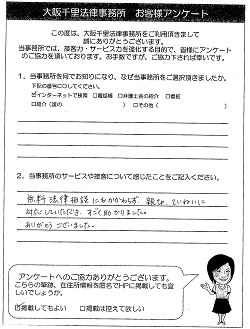 大阪千里法律事務所　お客様アンケート
この度は、大阪千里法律事務所をご利用頂きまして
誠にありがとうございます。
当事務所では、接客力・サービス力を強化する目的で、皆様にアンケート
のご協力を頂いております。お手数ですが、ご協力下されば幸いです。
1．当事務所を何でお知りになり、なぜ当事務所をご選択頂きましたか。
下記の番号に○してください。
☑インターネットで検索　□電話帳　□弁護士会の紹介　□看板
□紹介（誰の　　　　　）□その他（　　　　　）
2．当事務所のサービスや接客について感じたことをご記入ください。
無料法律相談にもかかわらず、親切、ていねいに
対応していただき、すごく助かりました。
ありがとうございました。
アンケートへのご協力ありがとうございます。
こちらの筆跡、在住所情報を匿名でHPに掲載しても宜
しいでしょうか。
☑掲載してもよい　□掲載は控えて欲しい